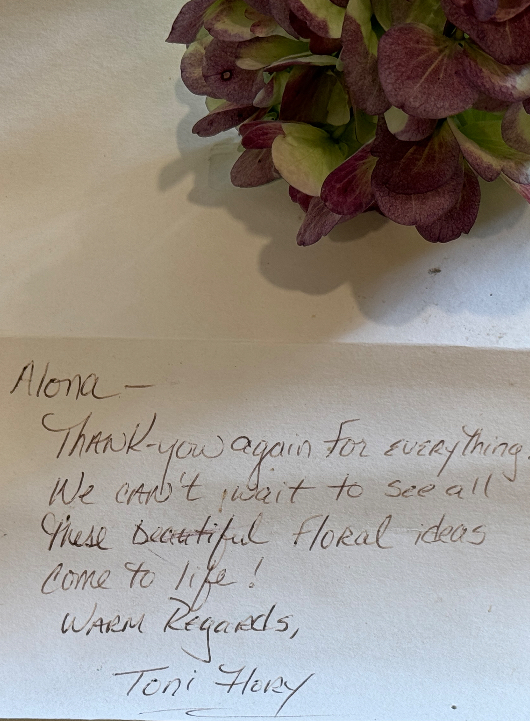 Alona -
Thank-you again for everything.
We can't wait to see all
these beautiful floral ideas
come to life!
Warm Regards,
Toni Flory